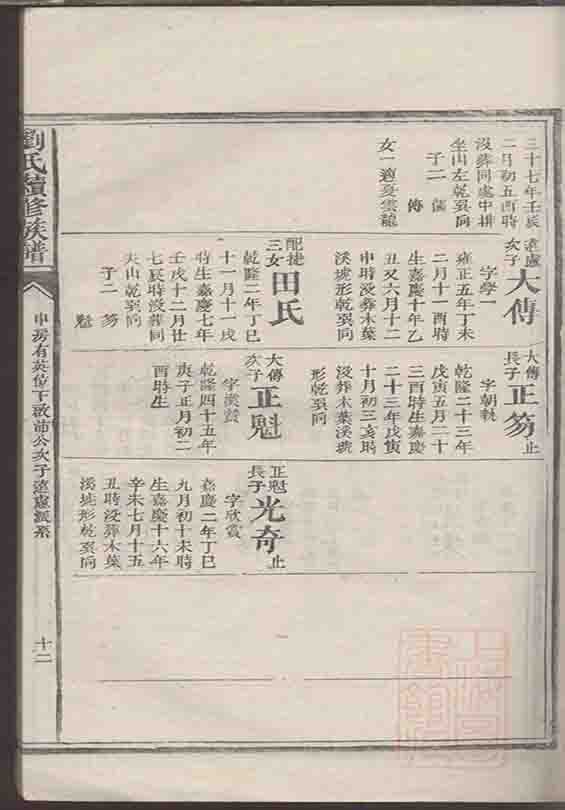 三十七年壬辰
二月初五酉時
沒葬同處中排
坐山左乾巽向
子二 儒
傳
女一適夏雲龍
遠慮次子
大傳
字學一
雍正五年丁未
二月十一酉時
生嘉慶十年乙
丑又六月十二
申時沒葬木葉
溪堍形乾巽向
配捷三女
田氏
乾隆二年丁巳
十一月十一戌
時生嘉慶七年
壬戌十二月廿
七辰時沒葬同
夫山乾巽向
子二 笏
魁
大傳長子
正笏止
字朝執
乾隆二十三年
戊寅五月二十
三酉時生嘉慶
二十三年戊寅
十月初三亥時
沒葬木葉溪琥
形乾巽向
大傳次子
正魁
字
乾隆四十五年
庚子正月初二
酉時生
正魁長子
光奇止
字欣賞
嘉慶二年丁巳
九月初十未時
生嘉慶十六年
辛未七月十五
丑時沒葬木葉
溪堍形乾巽向
劉氏續修族譜
申房有英位下政沛公次子遠慮派系
十二